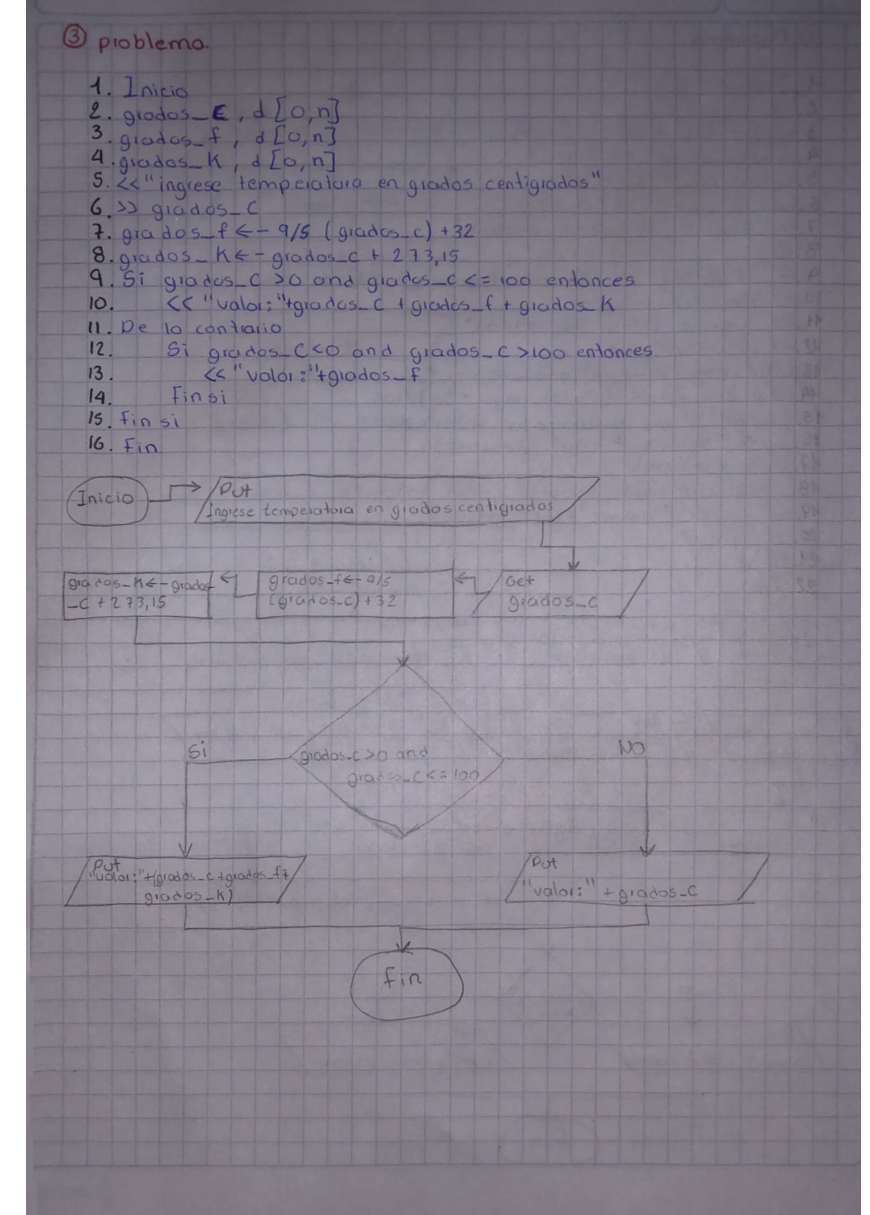 ③ problema.
1. Inicio
2. grados_C, d [0,n]
3. grados_f, d [0,n]
4. grados_K, d [0,n]
5. <<"ingrese temperatura en grados centigrados"
6. >> grados_C
7. grados_f ← 9/5 (grados_c) +32
8. grados_K ← grados_c + 273,15
9. Si grados_C >0 and grados_c <= 100 entonces
10. << "valor:"+grados_C + grados_f + grados_K
11. De lo contrario
12. Si grados_C<0 and grados_C >100 entonces
13. << "valor:"+grados_f
14. Finsi
15. Fin si
16. Fin
Inicio
Put
Ingrese temperatura en grados centigrados
grados_K ← grados
_C + 273,15
grados_f ← 9/5
(grados_c) +32
Get
grados_C
Si
grados_c >0 and
grados_C <= 100
NO
Put
"valor:"+(grados_c +grados_f+
grados_K)
Put
"valor:" + grados_C
Fin